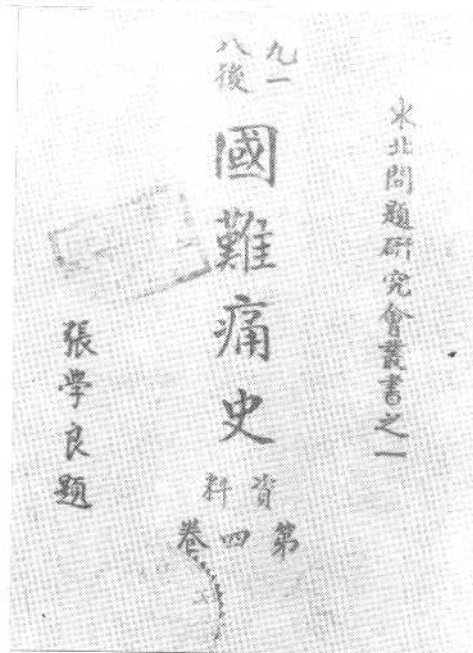 東北問題研究會叢書之一
九一
八後
國難痛史
資料
第四卷
張學良題